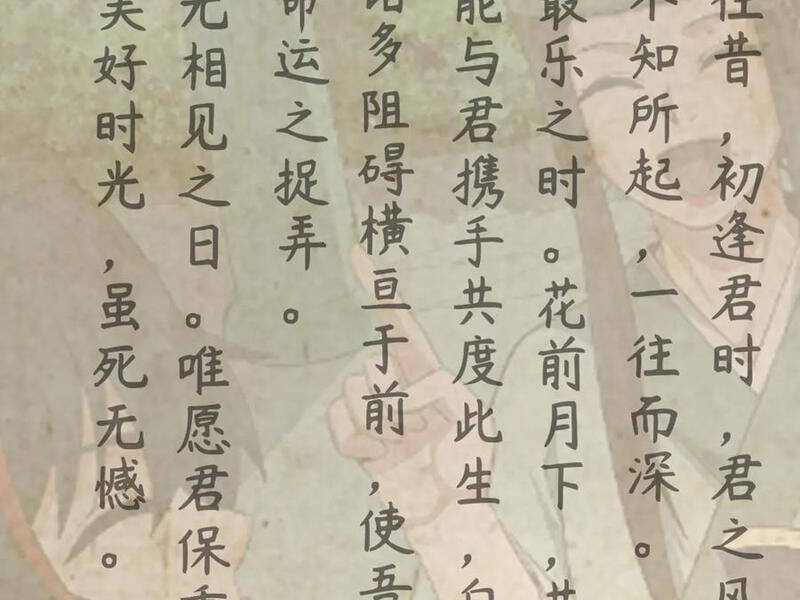 往昔,初逢君时,君之风
不知所起,一往而深。
最乐之时。花前月下,共
能与君携手共度此生,白
诸多阻碍横亘于前,使吾
命运之捉弄。
无相见之日。唯愿君保重
美好时光,虽死无憾。